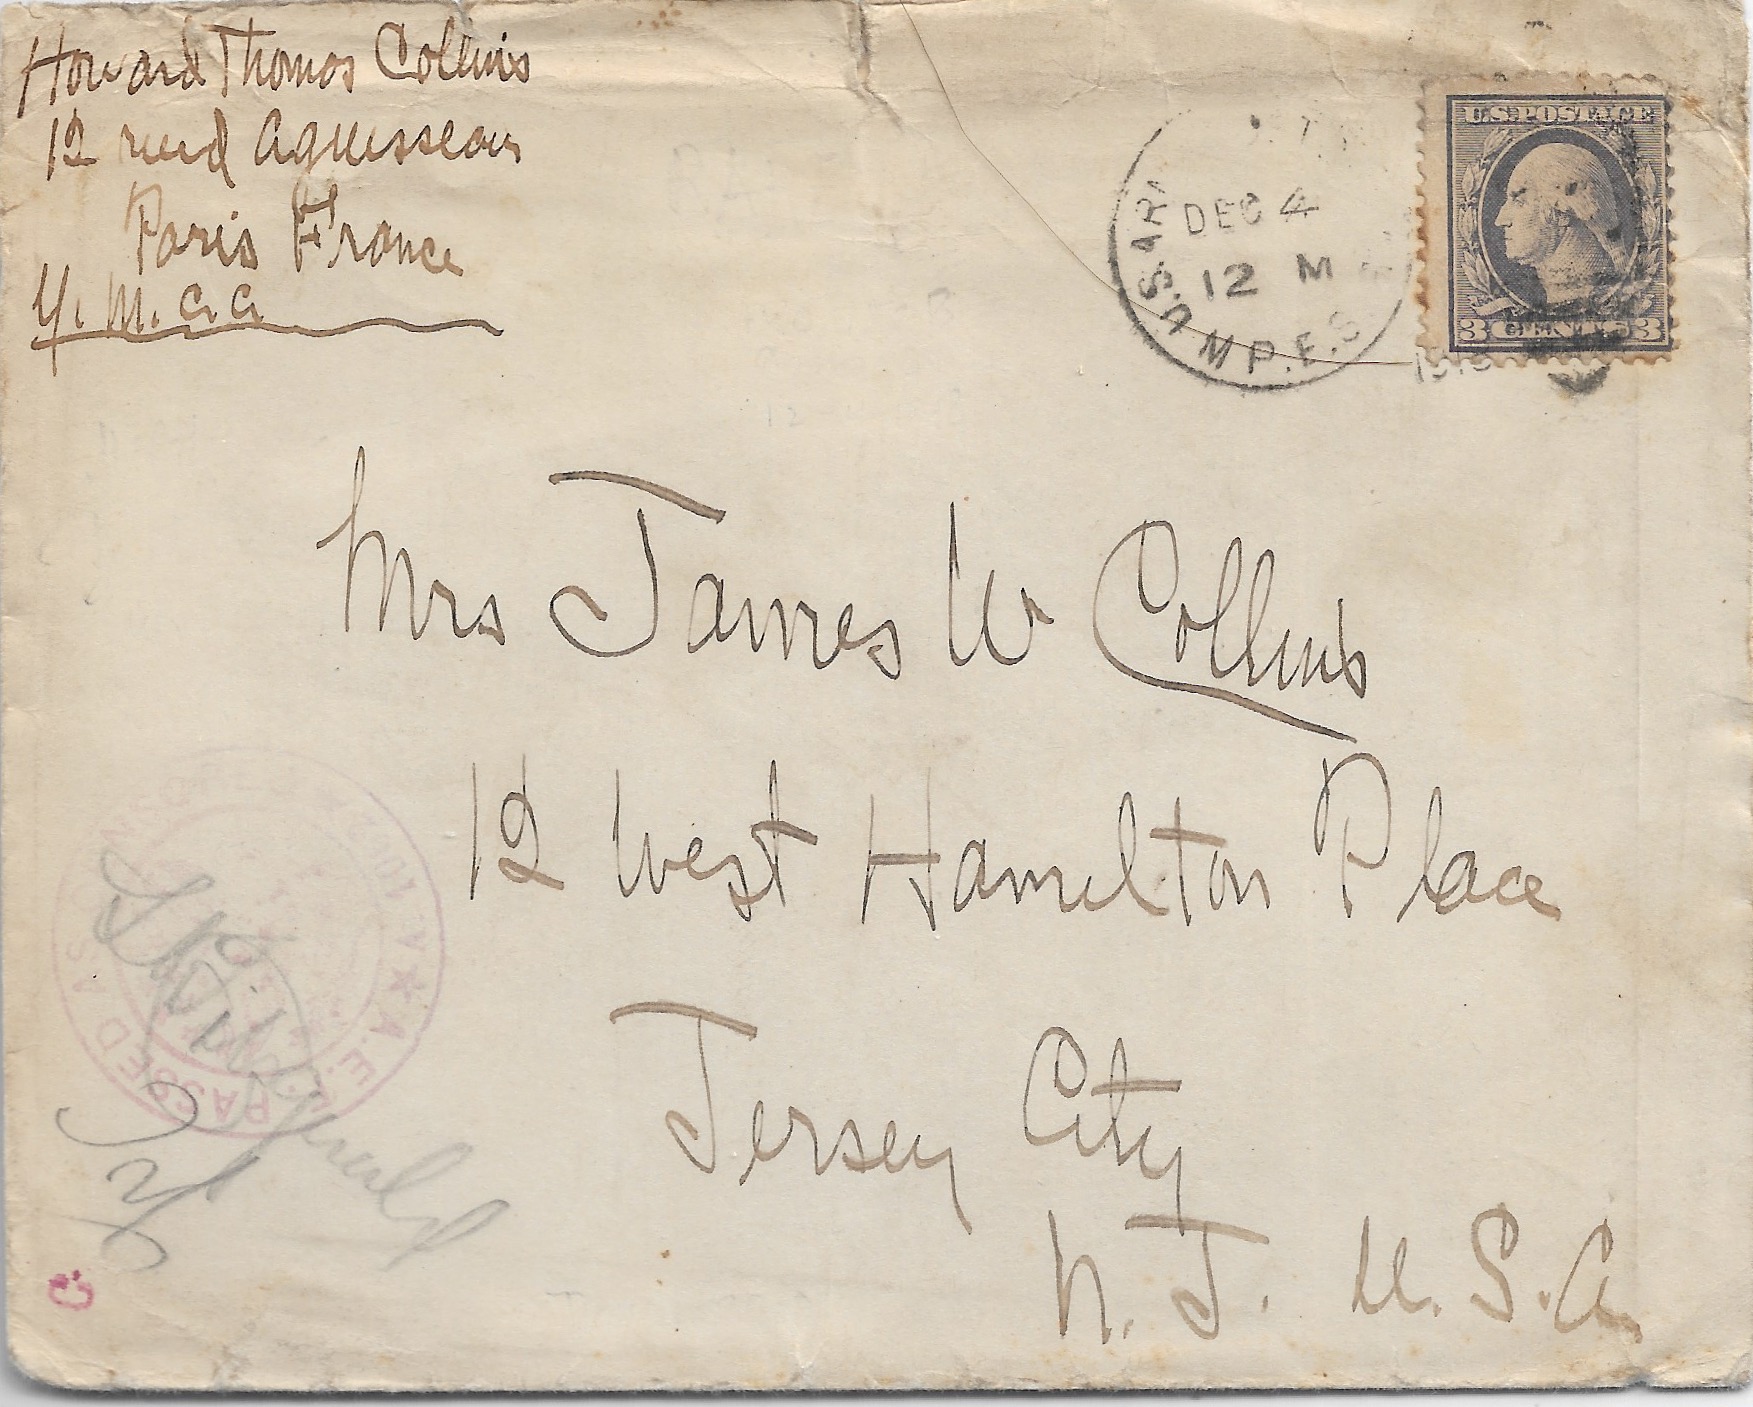 Howard Thomas Collins
12 rue d Aguesseau
Paris France
Y. M. C. A.
U.S. POSTAGE
3 CENTS 3
DEC 4
12 M
U.S. ARMY M.P.E.S.
Mrs James W Collins
12 West Hamilton Place
Jersey City
N. J. U. S. A.
PASSED AS
A.E.F.